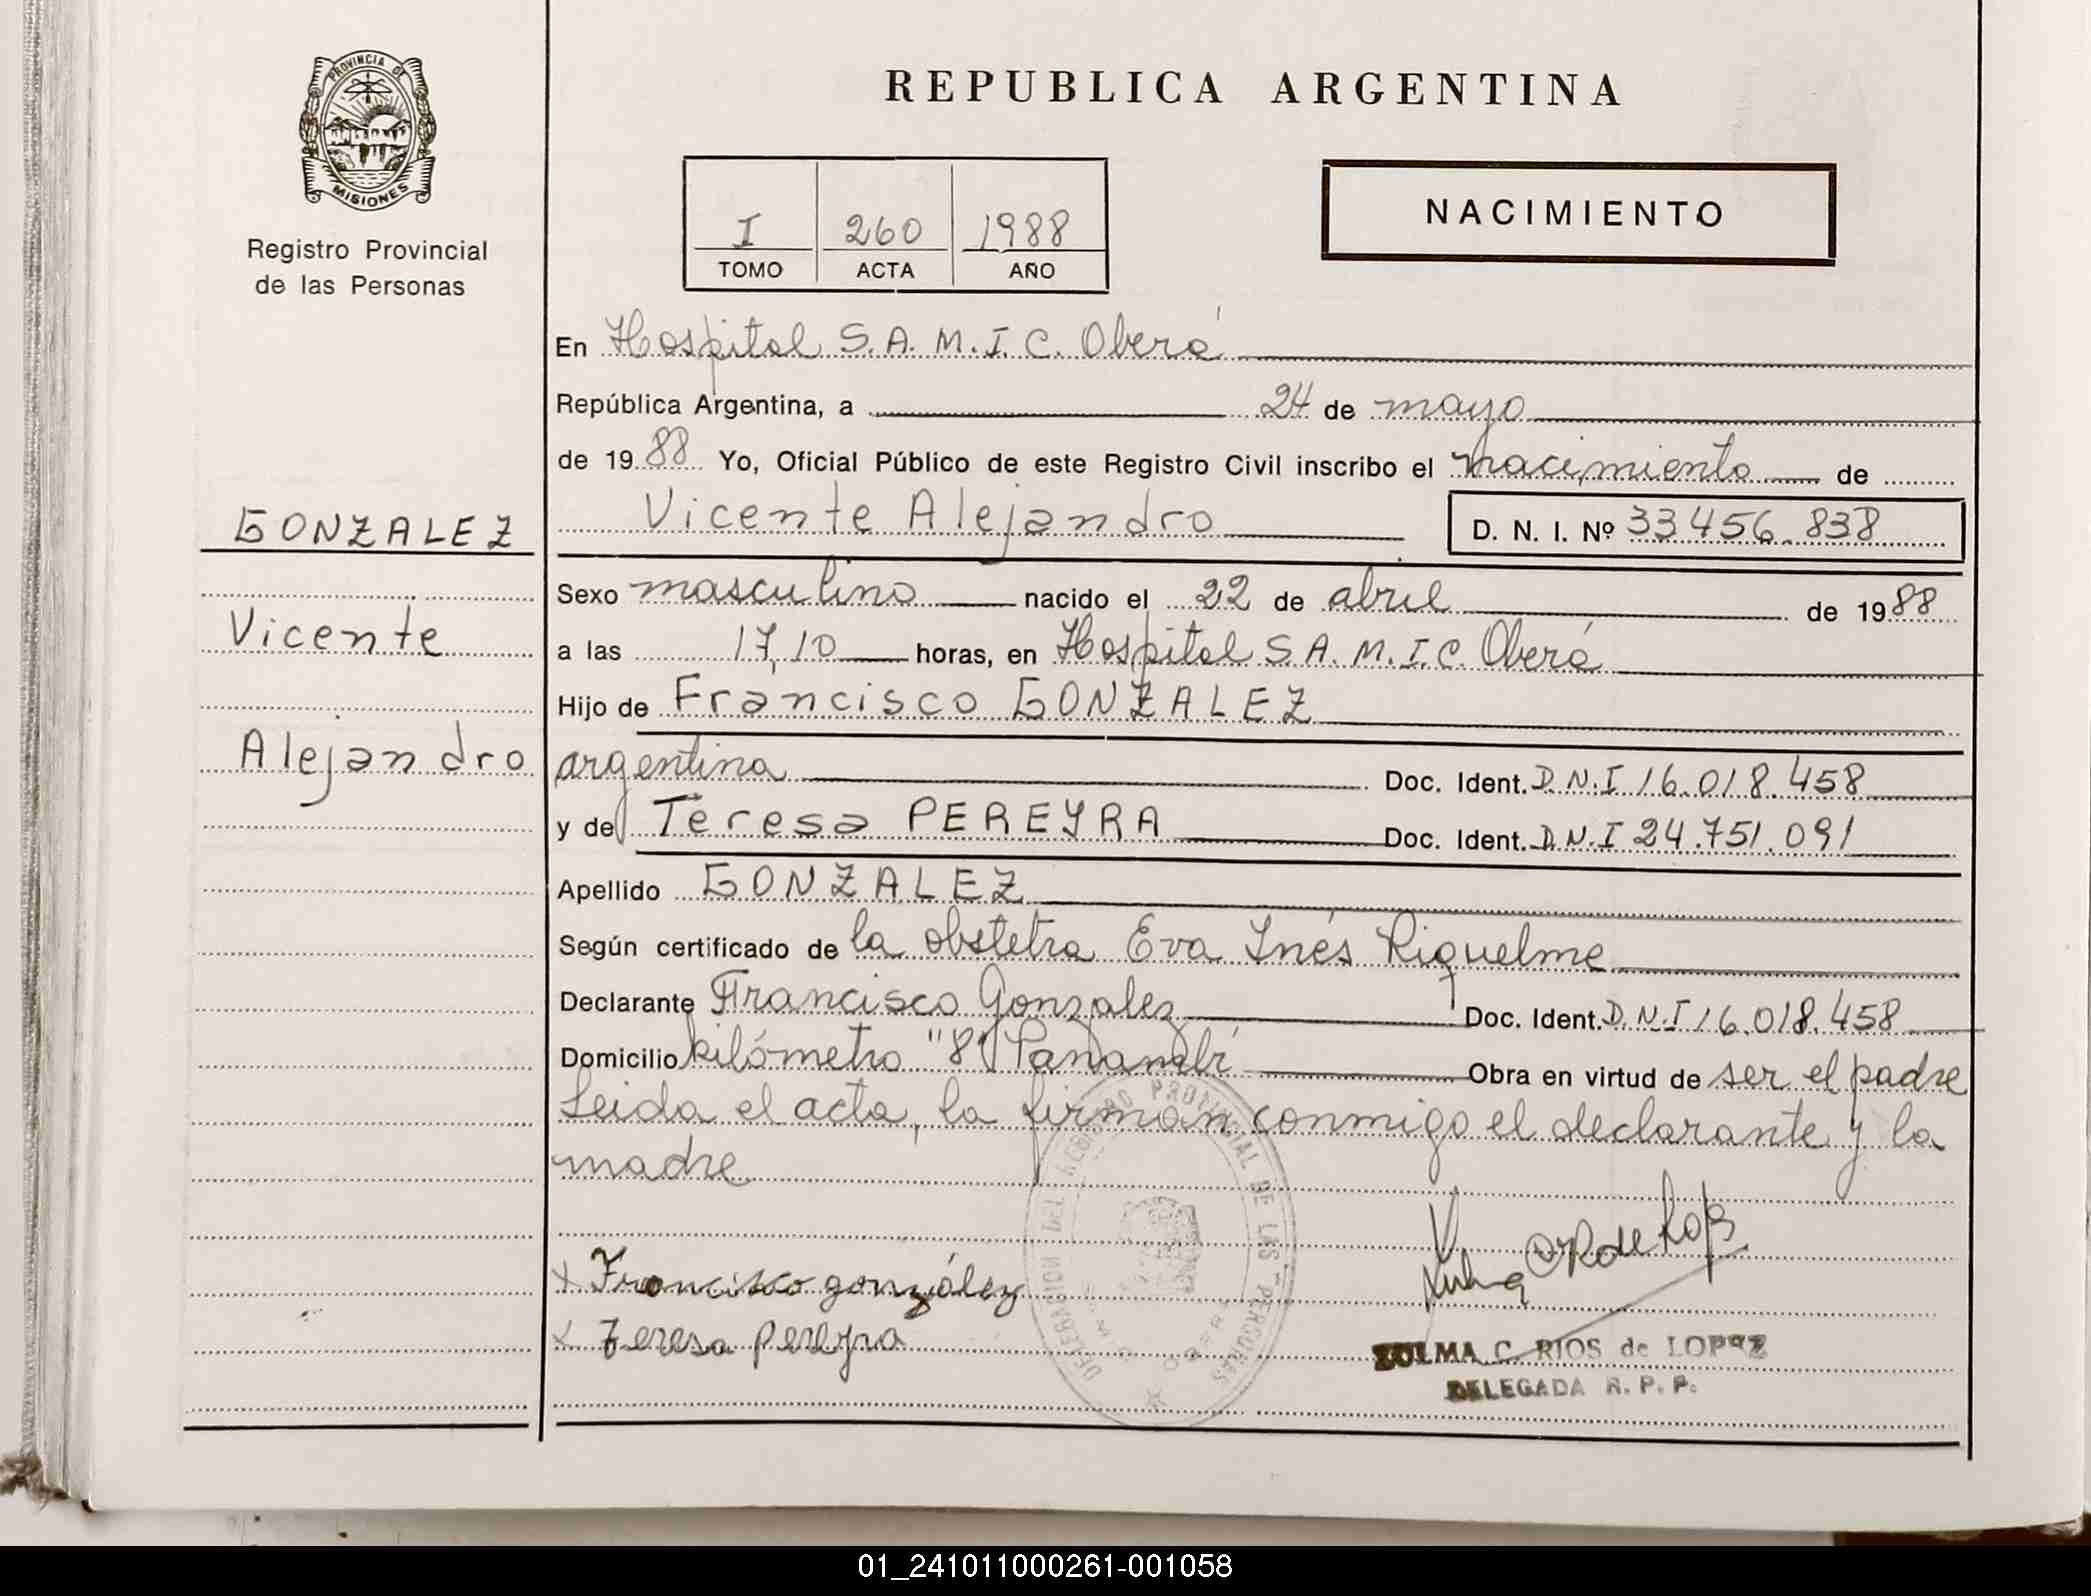 PROVINCIA DE
MISIONES
Registro Provincial
de las Personas
GONZALEZ
Vicente
Alejandro
REPUBLICA ARGENTINA
I 260 1988
TOMO ACTA AÑO
NACIMIENTO
En Hospital S.A.M.I.C. Oberá
República Argentina, a 24 de mayo
de 1988 Yo, Oficial Público de este Registro Civil inscribo el nacimiento de
Vicente Alejandro D. N. I. Nº 33 456.838
Sexo masculino nacido el 22 de abril de 1988
a las 17,10 horas, en Hospital S.A.M.I.C. Oberá
Hijo de Francisco GONZALEZ
argentina Doc. Ident. D.N.I 16.018.458
y de Teresa PEREYRA Doc. Ident. D.N.I 24.751.091
Apellido GONZALEZ
Según certificado de la obstetra Eva Inés Riquelme
Declarante Francisco Gonzalez Doc. Ident. D.N.I 16.018.458
Domicilio kilómetro "8" Panambí Obra en virtud de ser el padre
Leida el acta, la firman conmigo el declarante y la
madre
DELEGACION DEL REGISTRO PROVINCIAL DE LAS PERSONAS
x Francisco gonzález
x Teresa pereyra
ZULMA C. RIOS de LOPEZ
DELEGADA R. P. P.
01_241011000261-001058